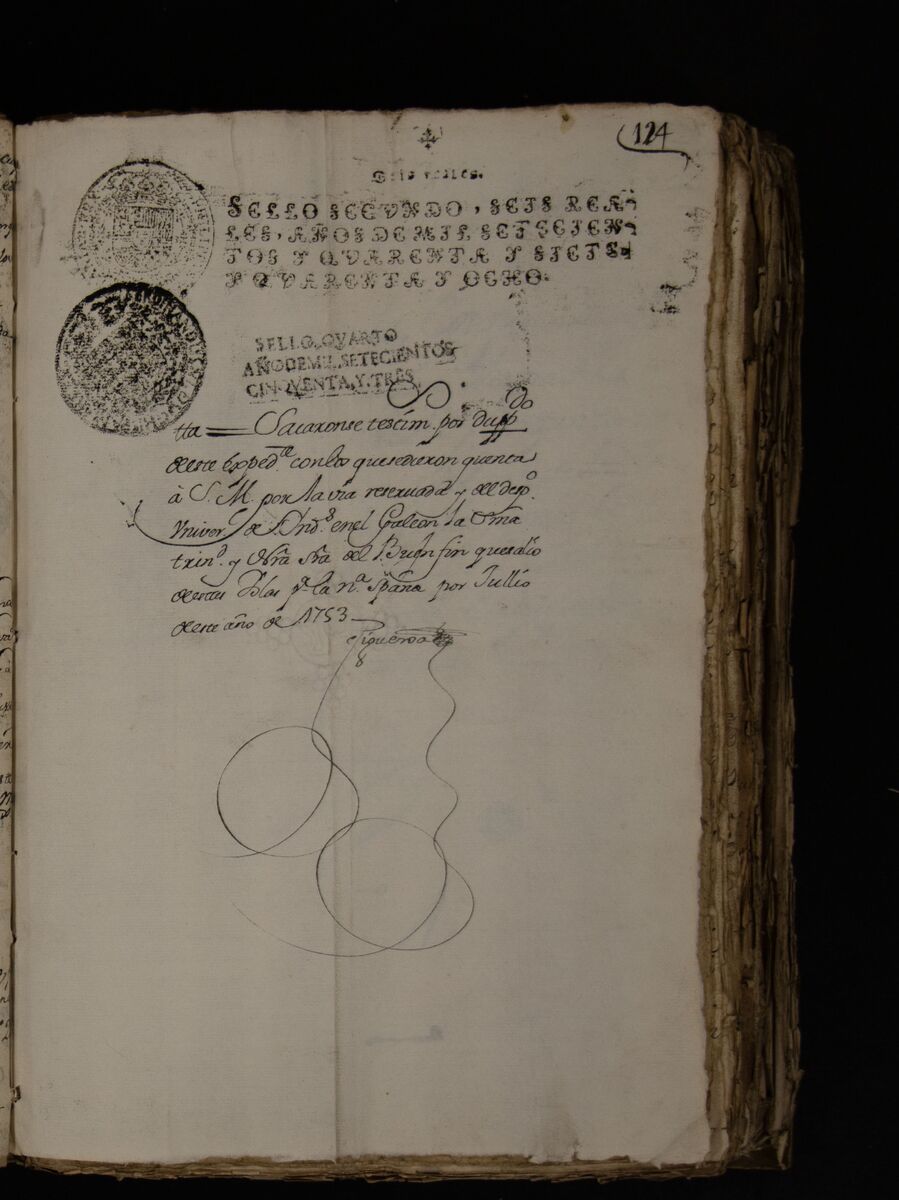 124
Seis reales.
SELLO SEGVNDO, SEIS REA-
LES, AÑOS DE MIL SETECIEN-
TOS Y QVARENTA Y SIETE
Y QVARENTA Y OCHO.
SELLO QVARTO
AÑO DE MIL SETECIENTOS
CINQVENTA, Y, TRES,
tta = Sacaronse testim. por dupp^do
deste Exped^te con los que se dieron quenta
à S. M. por la via reseruada y del desp^o.
Vniver^l de Ynd^s en el Galeon la
trin^d. y Nrâ Srâ del Buen fin que salio
destas Yslas p^a la n^a. Spaña por Jullio
deste año de 1753
Figueroa